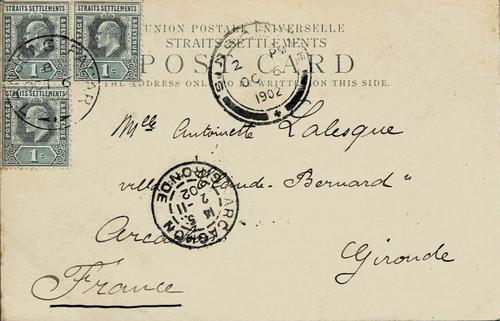 UNION POSTALE UNIVERSELLE
STRAITS SETTLEMENTS
POST CARD
THE ADDRESS ONLY TO BE WRITTEN ON THIS SIDE.
STRAITS SETTLEMENTS
POSTAGE
1c
STRAITS SETTLEMENTS
POSTAGE
1c
STRAITS SETTLEMENTS
POSTAGE
1c
2 PM
OC 6
1902
Mlle Antoinette Lalesque
villa Claude-Bernard
ARCACHON
GIRONDE
Gironde
France